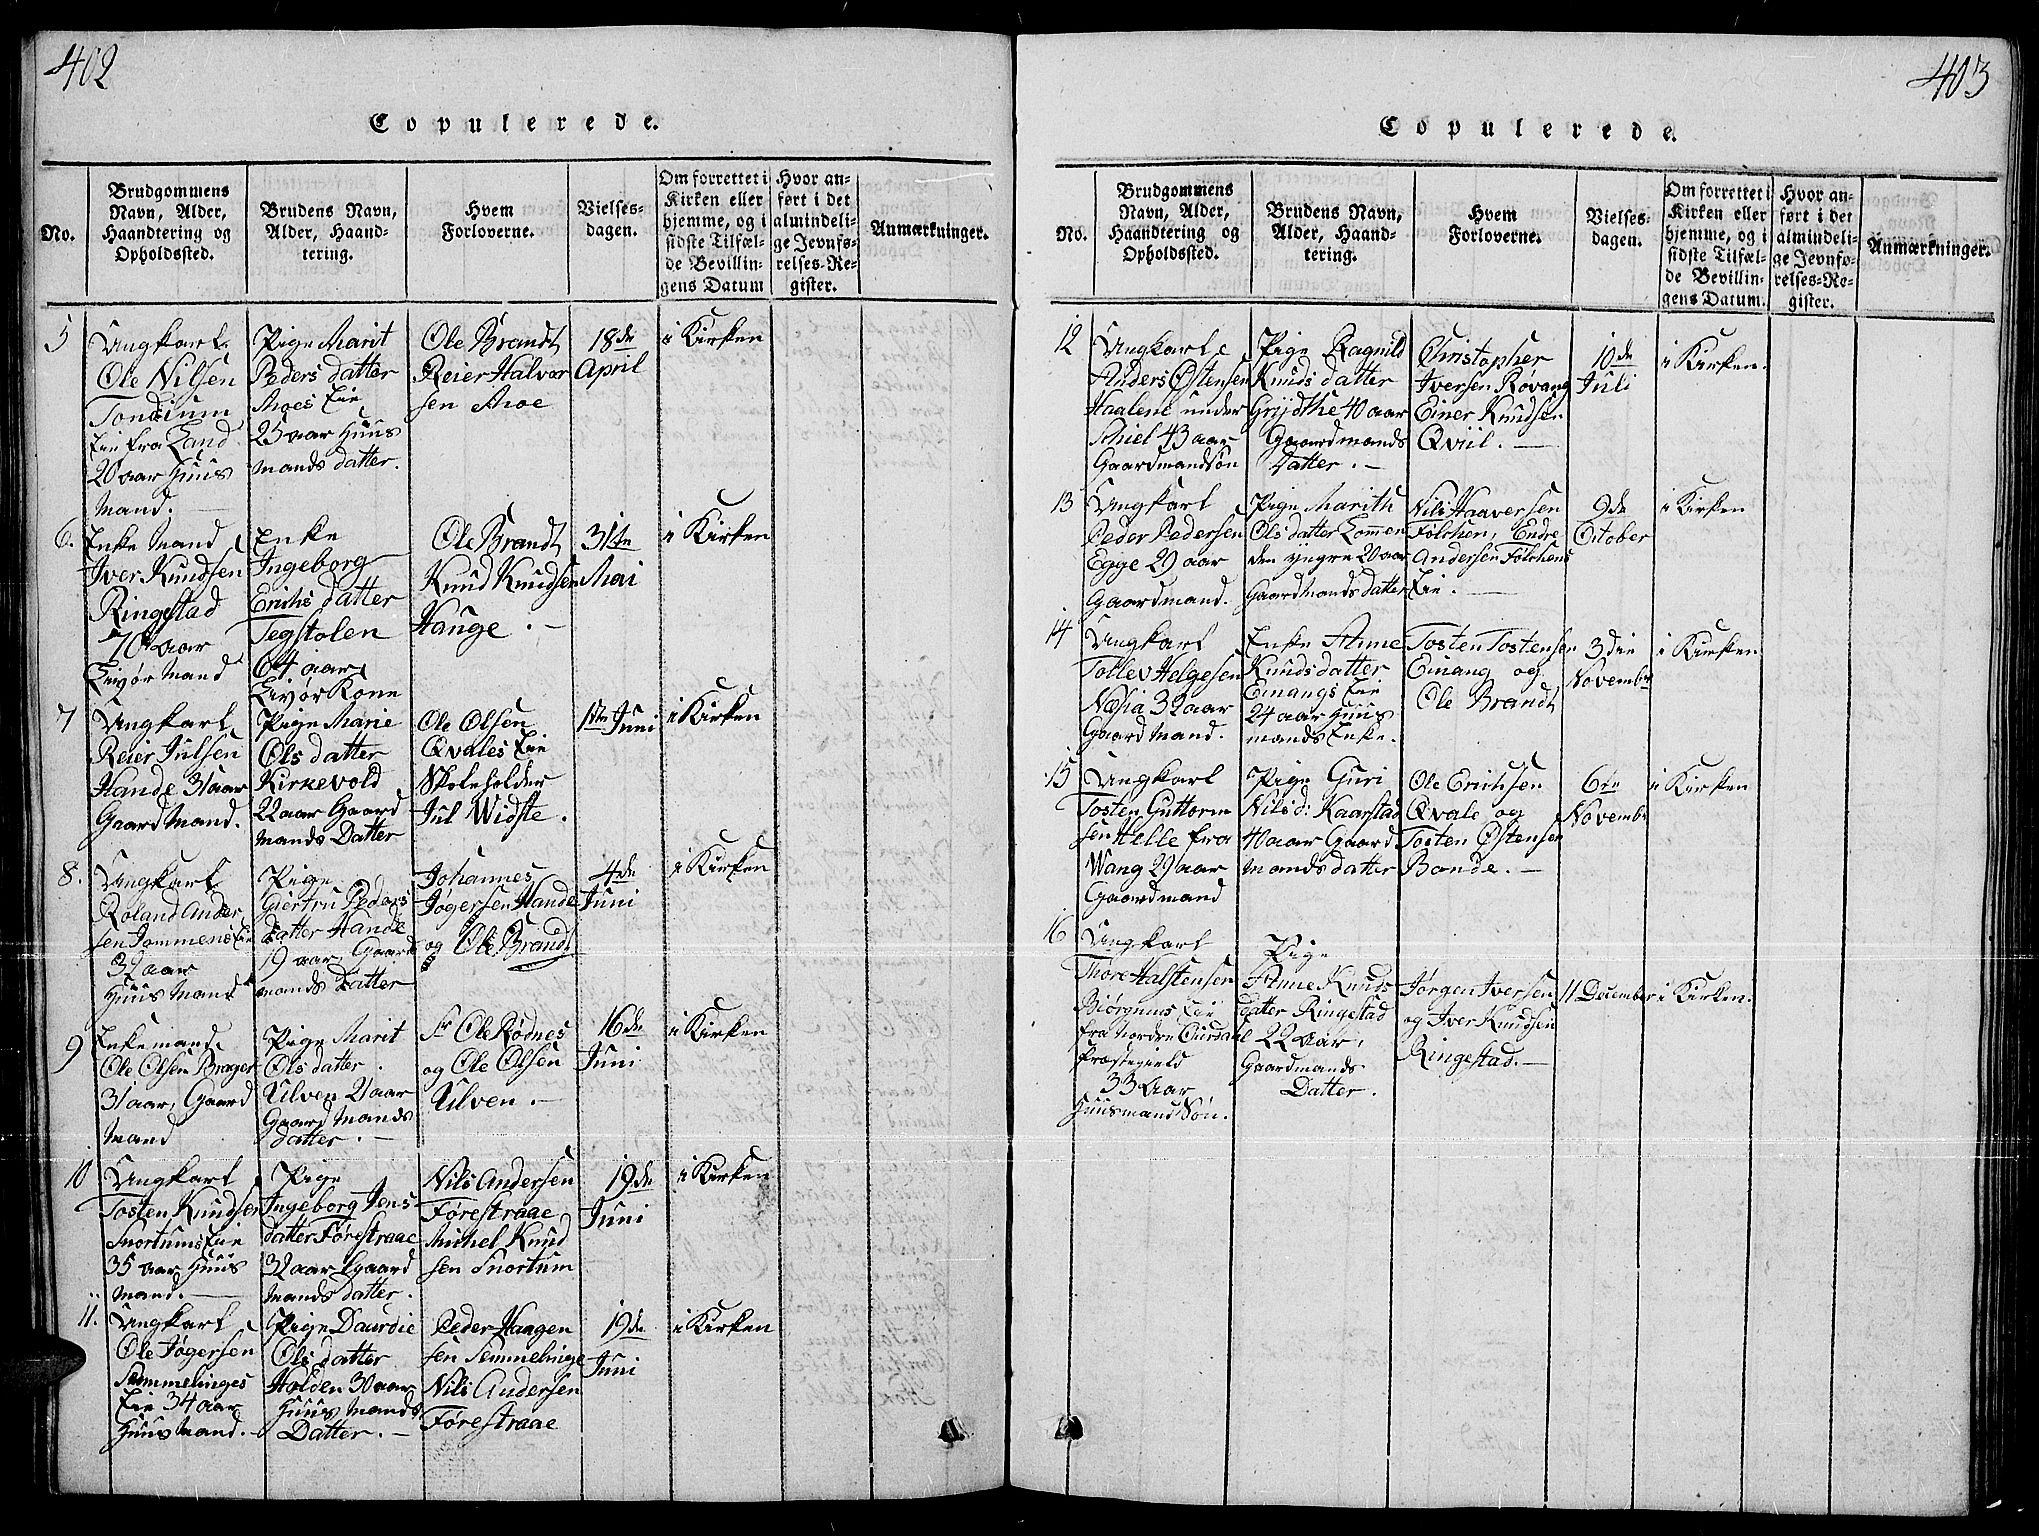 402
Copulerede.
No.
Brudgommens
Navn, Alder,
Haandtering og
Opholdssted.
Brudens Navn,
Alder, Haand-
tering.
Hvem
Forloverne.
Vielses-
dagen.
Om forrettet i
Kirken eller
hjemme, og i
sidste Tilfæl-
de Bevillin-
gens Datum
Hvor an-
ført i det
almindeli-
ge Jevnfø-
relses-Re-
gister.
Anmærkninger.
5
Ungkarl
Ole Nilsen
Eie fra Land
20 aar Huus
Mand.
Pige Marit
Peders datter
Moes Eie
25 aar Huus
mands datter.
Ole Brandt
Reier Halvor
sen Moe
18de
April
i Kirken
6.
Enke Mand
Iver Knudsen
Ringestad
70 aar
Livør Mand
Enke
Ingeborg
Erichs datter
Tegstolen
64 aar
Livør Kone
Ole Brandt
Knud Knudsen
Hange. —
31te
Mai
i Kirken
7
Ungkarl
Reier Julsen
Hande 31 aar
Gaard Mand.
Pige Marie
Ols datter
Kirkevold
22 aar Gaard
mands Datter
Ole Olsen
Qvales Eie
Skoleholder
Jul Widste.
1ste Juni
i Kirken
8.
Ungkarl
Roland Ander
sen Jommens Eie
32 aar
Huus Mand
Pige
Giertru Peders
datter Hande
19 aar Gaard
mands Datter
Johannes
Jogersen Hande
og Ole Brandt
4de
Juni
i Kirken
9
Enkemand
Ole Olsen Brager
31 aar, Gaard
Mand
Pige Marit
Ols datter.
Ulven 21 aar
Gaard Mands
datter. —
Sr Ole Rødnes
og Ole Olsen
Ulven. —
16de
Juni
i Kirken
10
Ungkarl
Tosten Knudsen
Snortums Eie
35 aar Huus
Mand. —
Pige
Ingeborg Jens-
datter Førestraae
32 aar Gaard
Mands datter.
Nils Andersen
Førestraae
Michel Knud
sen Snortum
19de
Juni
i Kirken
11.
Ungkarl
Ole Jøgersen
Semmelinges
Eie 34 aar
Huus Mand. —
Pige Daurdie
Ols datter
Holden 30 aar
Huus Mands
Datter. —
Peder Haagen
sen Semmelinge
Nils Andersen
Førestraae
19de
Juni
i Kirken
403
Copulerede.
No.
Brudgommens
Navn, Alder,
Haandtering og
Opholdssted.
Brudens Navn,
Alder, Haand-
tering.
Hvem
Forloverne.
Vielses-
dagen.
Om forrettet i
Kirken eller
hjemme, og i
sidste Tilfæl-
de Bevillin-
gens Datum.
Hvor an-
ført i det
almindeli-
ge Jevnfø-
relses-Re-
gister.
Anmærkninger.
12
Ungkarl
Anders Østensen
Haalene under
Schiel 43 aar
Gaardmandsøn
Pige Ragnild
Knuds datter
Grijdthe 40 aar
Gaardmands
Datter. —
Christopher
Iversen Røvang
Einer Knudsen
Qviil. —
10de
Juli
i Kirken.
13
Ungkarl
Peder Pedersen
Egge 29 aar
Gaardmand.
Pige Marith
Ols datter Lommen
den yngre 20 aar
Gaard Mands datter
Nils Haaversen
Følchen, Endre
Andersen Følchens
Eie. —
9de
October
i Kirken
14
Ungkarl
Tollev Helgesen
Næsia 32 aar
Gaard Mand.
Enke Anne
Knuds datter
Emangs Eie
24 aar Huus
mands Enke.
Tosten Tostensen
Emang og
Ole Brandt
3die
Novembr
i Kirken
15
Ungkarl
Tosten Guttorm
sen Helle fra
Wang 29 aar
Gaardmand
Pige Guri
Nils d: Kaarstad
40 aar Gaard
mands datter
Ole Erichsen
Qvale og
Tosten Østensen
Bonde. —
6te
Novembr
i Kirken
16
Ungkarl
Thore Halstensen
Biørgums Eie
fra Nordre Ourdahl
Præstegield
33 aar
Huusmand Søn.
Pige
Anne Knuds
datter Ringestad
22 aar,
Gaardmands
Datter.
Jørgen Iversen
og Iver Knudsen
Ringestad. —
11 December
i Kirken.